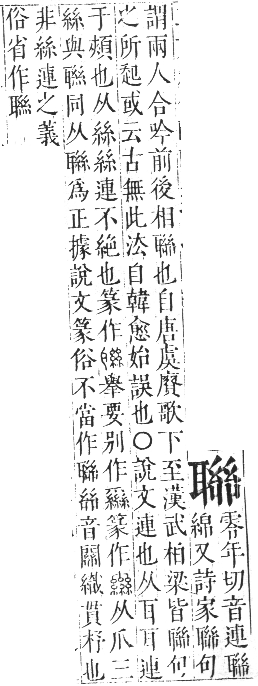 聯
零年切音連聯
綿又詩家聯句
謂兩人合吟前後相聯也自唐虞賡歌下至漢武柏梁皆聯句
之所起或云古無此法自韓愈始誤也○說文連也从耳耳連
于頰也从絲絲連不絕也篆作舉要別作篆作从爪三
絲與聯同从聯爲正據說文篆俗不當作聯音關織貫杼也
非絲連之義
俗省作聯